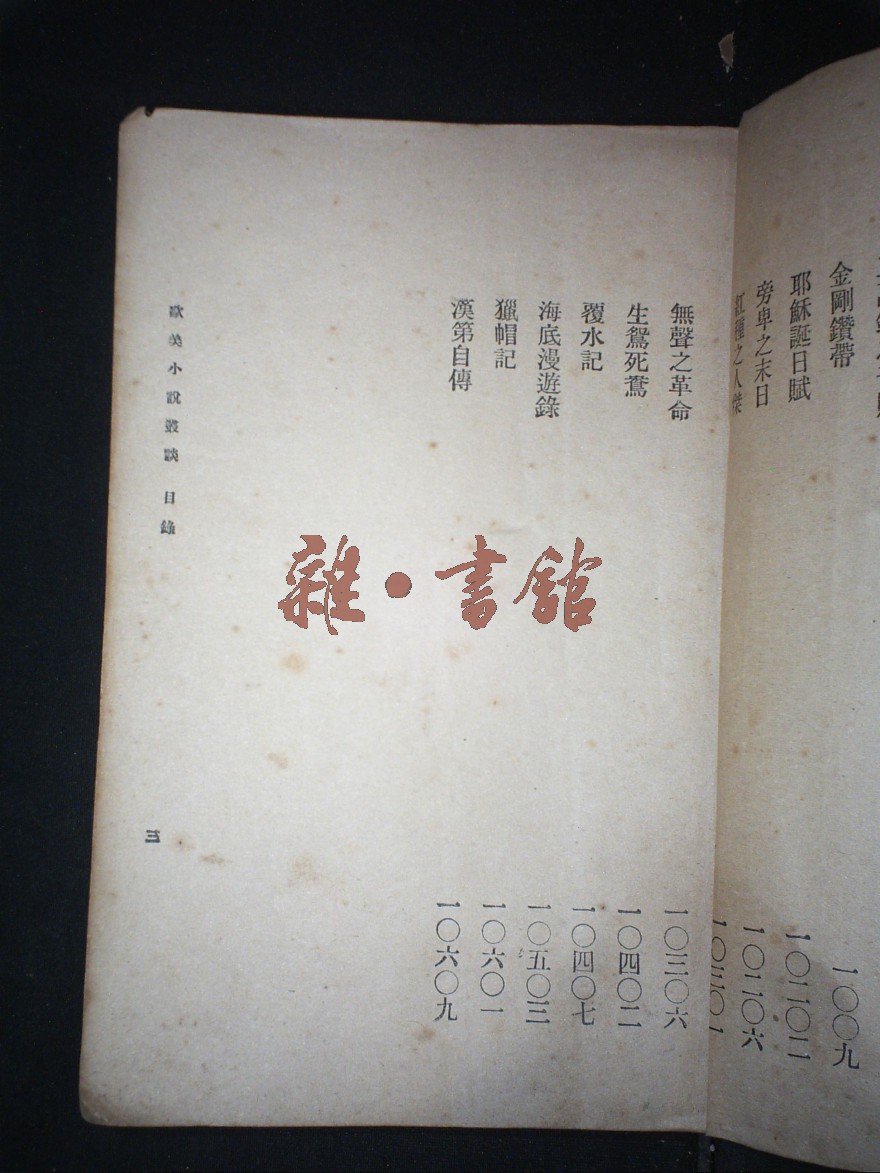 金剛鑽帶 一〇〇九
耶穌誕日賦 一〇二〇二
旁卑之末日 一〇二〇六
紅種之人傑 一〇三〇一
無聲之革命 一〇三〇六
生鴛死鴦 一〇四〇二
覆水記 一〇四〇七
海底漫遊錄 一〇五〇三
獵帽記 一〇六〇一
漢第自傳 一〇六〇九
歐美小說叢談 目錄
三
雜·書館